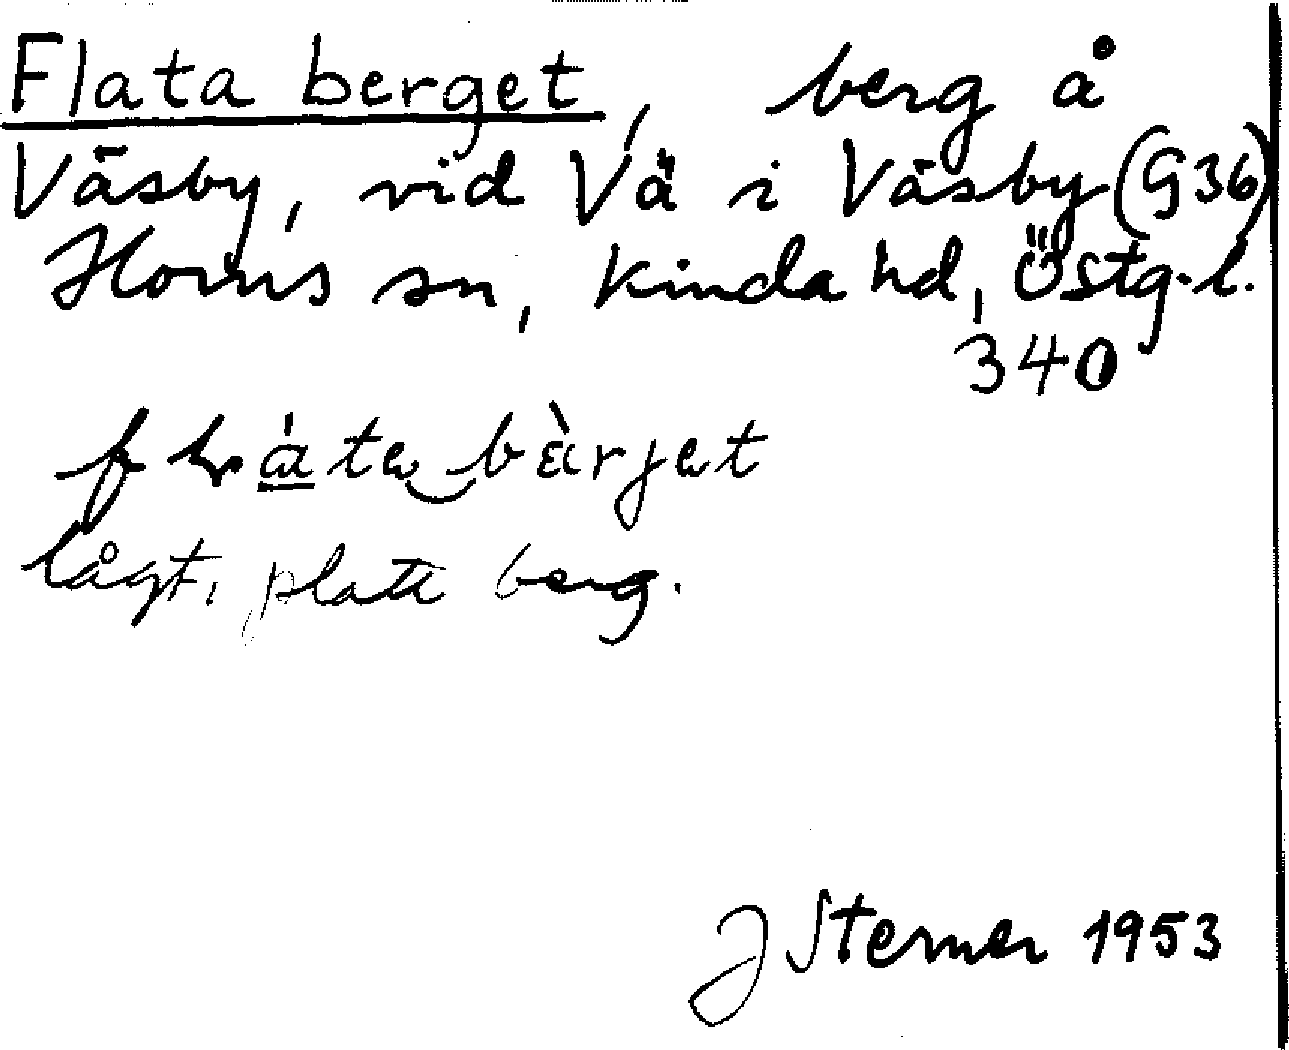 Flata berget, berg å
Väsby, vid Vä i Väsby (G36)
Horns sn, Kinda hd, Östg.l.
340
lågt, platt berg.
J Sterner 1953